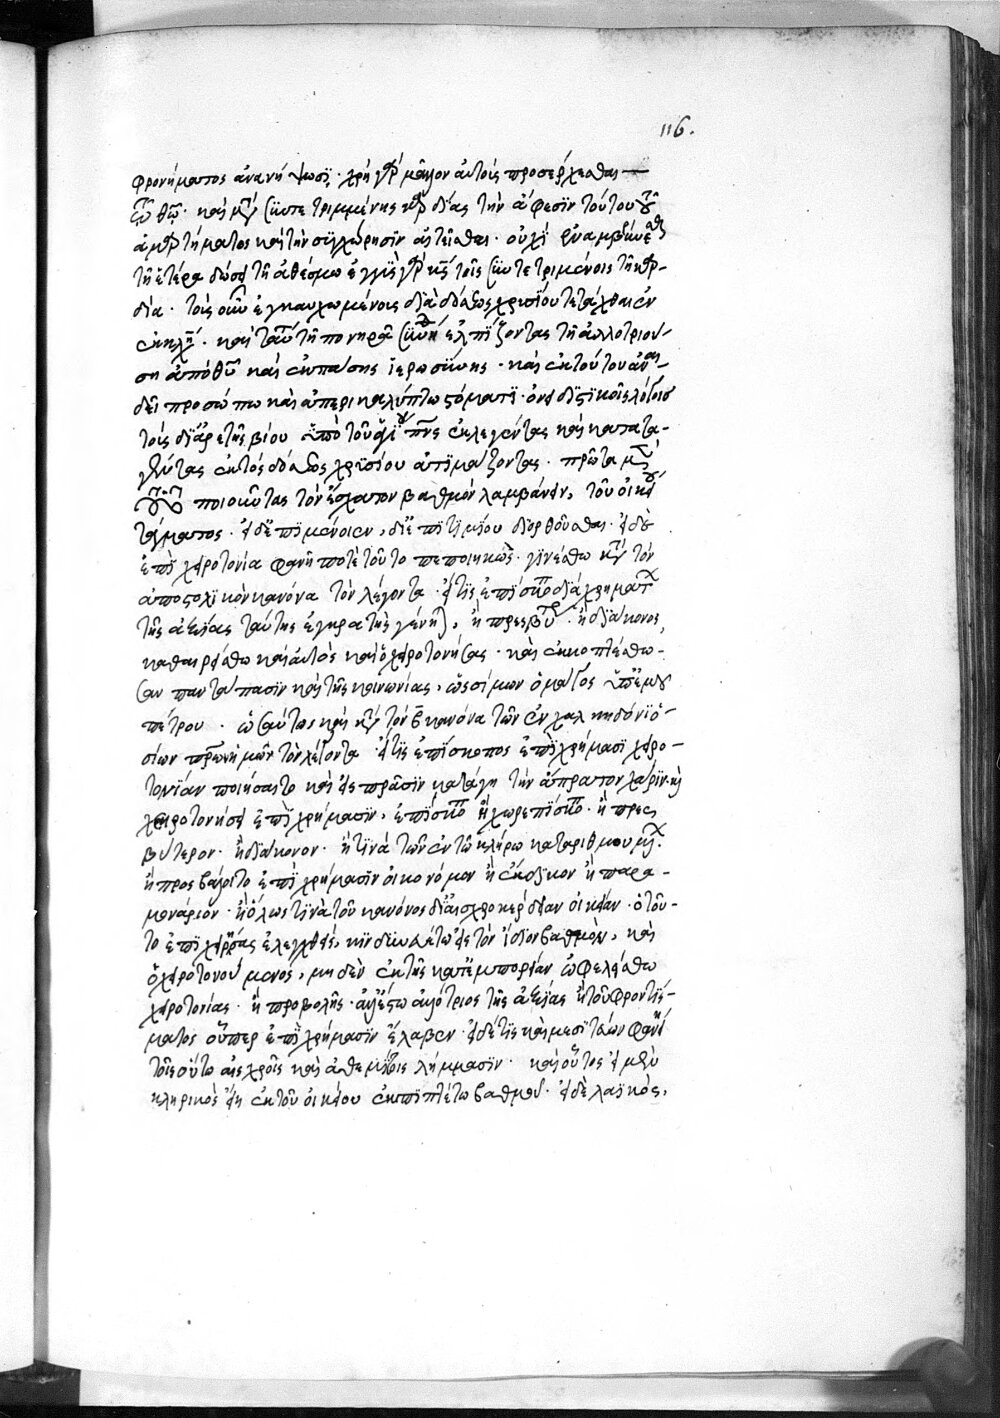 116.
φρονήματος ἀνανήψωσι· χρὴ γὰρ μᾶλλον αὐτοὺς προσέρχεσθαι
τῷ θῷ· καὶ μετὰ συντετριμμένης καρδίας τὴν ἄφεσιν τούτου τοῦ
ἁμαρτήματος καὶ τὴν συγχώρησιν αἰτεῖσθαι. οὐχὶ ἐναμβρύνεσθαι
τῇ ἐτέρᾳ δόσει τῇ ἀθέσμῳ ἐγγὺς γὰρ κς τοῖς συντετριμμένοις τὴν καρ-
δία. τοὺς οὖν ἐγκαυχωμένους διὰ δόσεως χρυσίου τετάχθαι ἐν
ἐκκλησίᾳ· καὶ ταύτῃ τῇ πονηρᾷ συνηθείᾳ ἐλπίζοντας τῇ ἀλλοτριού-
σῃ ἀπὸ θῦ καὶ ἐκ πάσης ἱερωσύνης· καὶ ἐκ τούτου ἀναι-
δεῖ προσώπῳ καὶ ἀπερικαλύπτῳ στόματι ὀνειδιστικοῖς λόγοις
τοὺς δι' ἀρετῆς βίου ὑπὸ τοῦ ἁγίου πνς ἐκλεγέντας καὶ κατατα-
γέντας ἐκτὸς δόσεως χρυσίου ἀτιμάζοντας. πρῶτα μὲν
τοῦτο ποιοῦντας τὸν ἔσχατον βαθμὸν λαμβάνειν, τοῦ οἰκείου
τάγματος. εἰ δὲ ἐπιμένοιεν, δι' ἐπιτιμίου διορθοῦσθαι. εἰ δὲ
ἐπὶ χειροτονία φανῇ ποτὲ τοῦτο πεποιηκὼς· γινέσθω κατὰ τὸν
ἀποστολικὸν κανόνα τὸν λέγοντα· εἴ τις ἐπίσκοπος διὰ χρημάτων
τῆς ἀξίας ταύτης ἐγκρατὴς γένηται, ἢ πρεσβύτερος· ἢ διάκονος,
καθαιρείσθω καὶ αὐτὸς καὶ ὁ χειροτονήσας· καὶ ἐκκοπτέσθω-
σαν παντάπασιν καὶ τῆς κοινωνίας, ὡς σίμων ὁ μάγος ὑπ' ἐμοῦ
πέτρου. ὡσαύτως καὶ κατὰ τὸν β κανόνα τῶν ἐν χαλκηδόνι ὁ-
σίων πρων ἡμῶν τὸν λέγοντα· εἴ τις ἐπίσκοπος ἐπὶ χρήμασι χειρο-
τονίαν ποιήσαιτο καὶ εἰς πρᾶσιν κατάγῃ τὴν ἄπρατον χάριν καὶ
χειροτονήσῃ ἐπὶ χρήμασιν, ἐπίσκοπον ἢ χωρεπίσκοπον· ἢ πρεσ
βύτερον· ἢ διάκονον· ἤ τινα τῶν ἐν τῷ κλήρῳ καταριθμουμένων.
ἢ προσβάλοιτο ἐπὶ χρήμασιν οἰκονόμον ἢ ἔκδικον ἢ παρα-
μονάριον· ἢ ὅλως τινὰ τοῦ κανόνος δι' αἰσχροκέρδειαν οἰκείαν· ὁ τοῦ-
το ἐπιχειρήσας ἐλεγχθεὶς, κινδυνευέτω εἰς τὸν ἴδιον βαθμὸν, καὶ
ὁ χειροτονούμενος, μηδὲν ἐκ τῆς κατ' ἐμπορείαν ὠφελείσθω
χειροτονίας· ἢ προβολῆς· ἀλλ' ἔστω ἀλλότριος τῆς ἀξίας ἢ τοῦ φροντίσ-
ματος οὗπερ ἐπὶ χρήμασιν ἔλαβεν· εἰ δέ τις καὶ μεσιτεύων φανείη
τοῖς οὕτω αἰσχροῖς καὶ ἀθεμίτοις λήμμασιν· καὶ οὗτος εἰ μὲν
κληρικὸς εἴη ἐκ τοῦ οἰκείου ἐκπιπτέτω βαθμοῦ· εἰ δὲ λαϊκὸς,